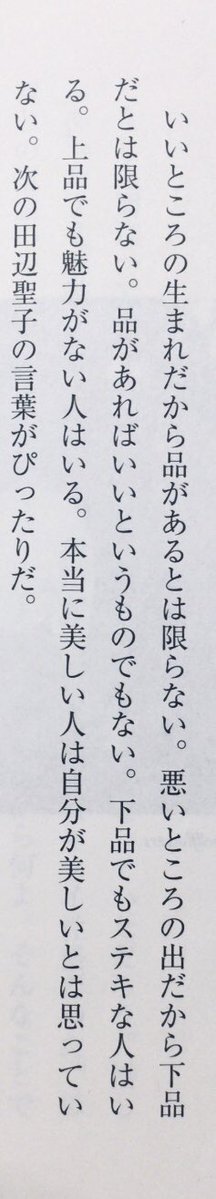 いいところの生まれだから品があるとは限らない。悪いところの出だから下品
だとは限らない。品があればいいというものでもない。下品でもステキな人はい
る。上品でも魅力がない人はいる。本当に美しい人は自分が美しいとは思ってい
ない。次の田辺聖子の言葉がぴったりだ。